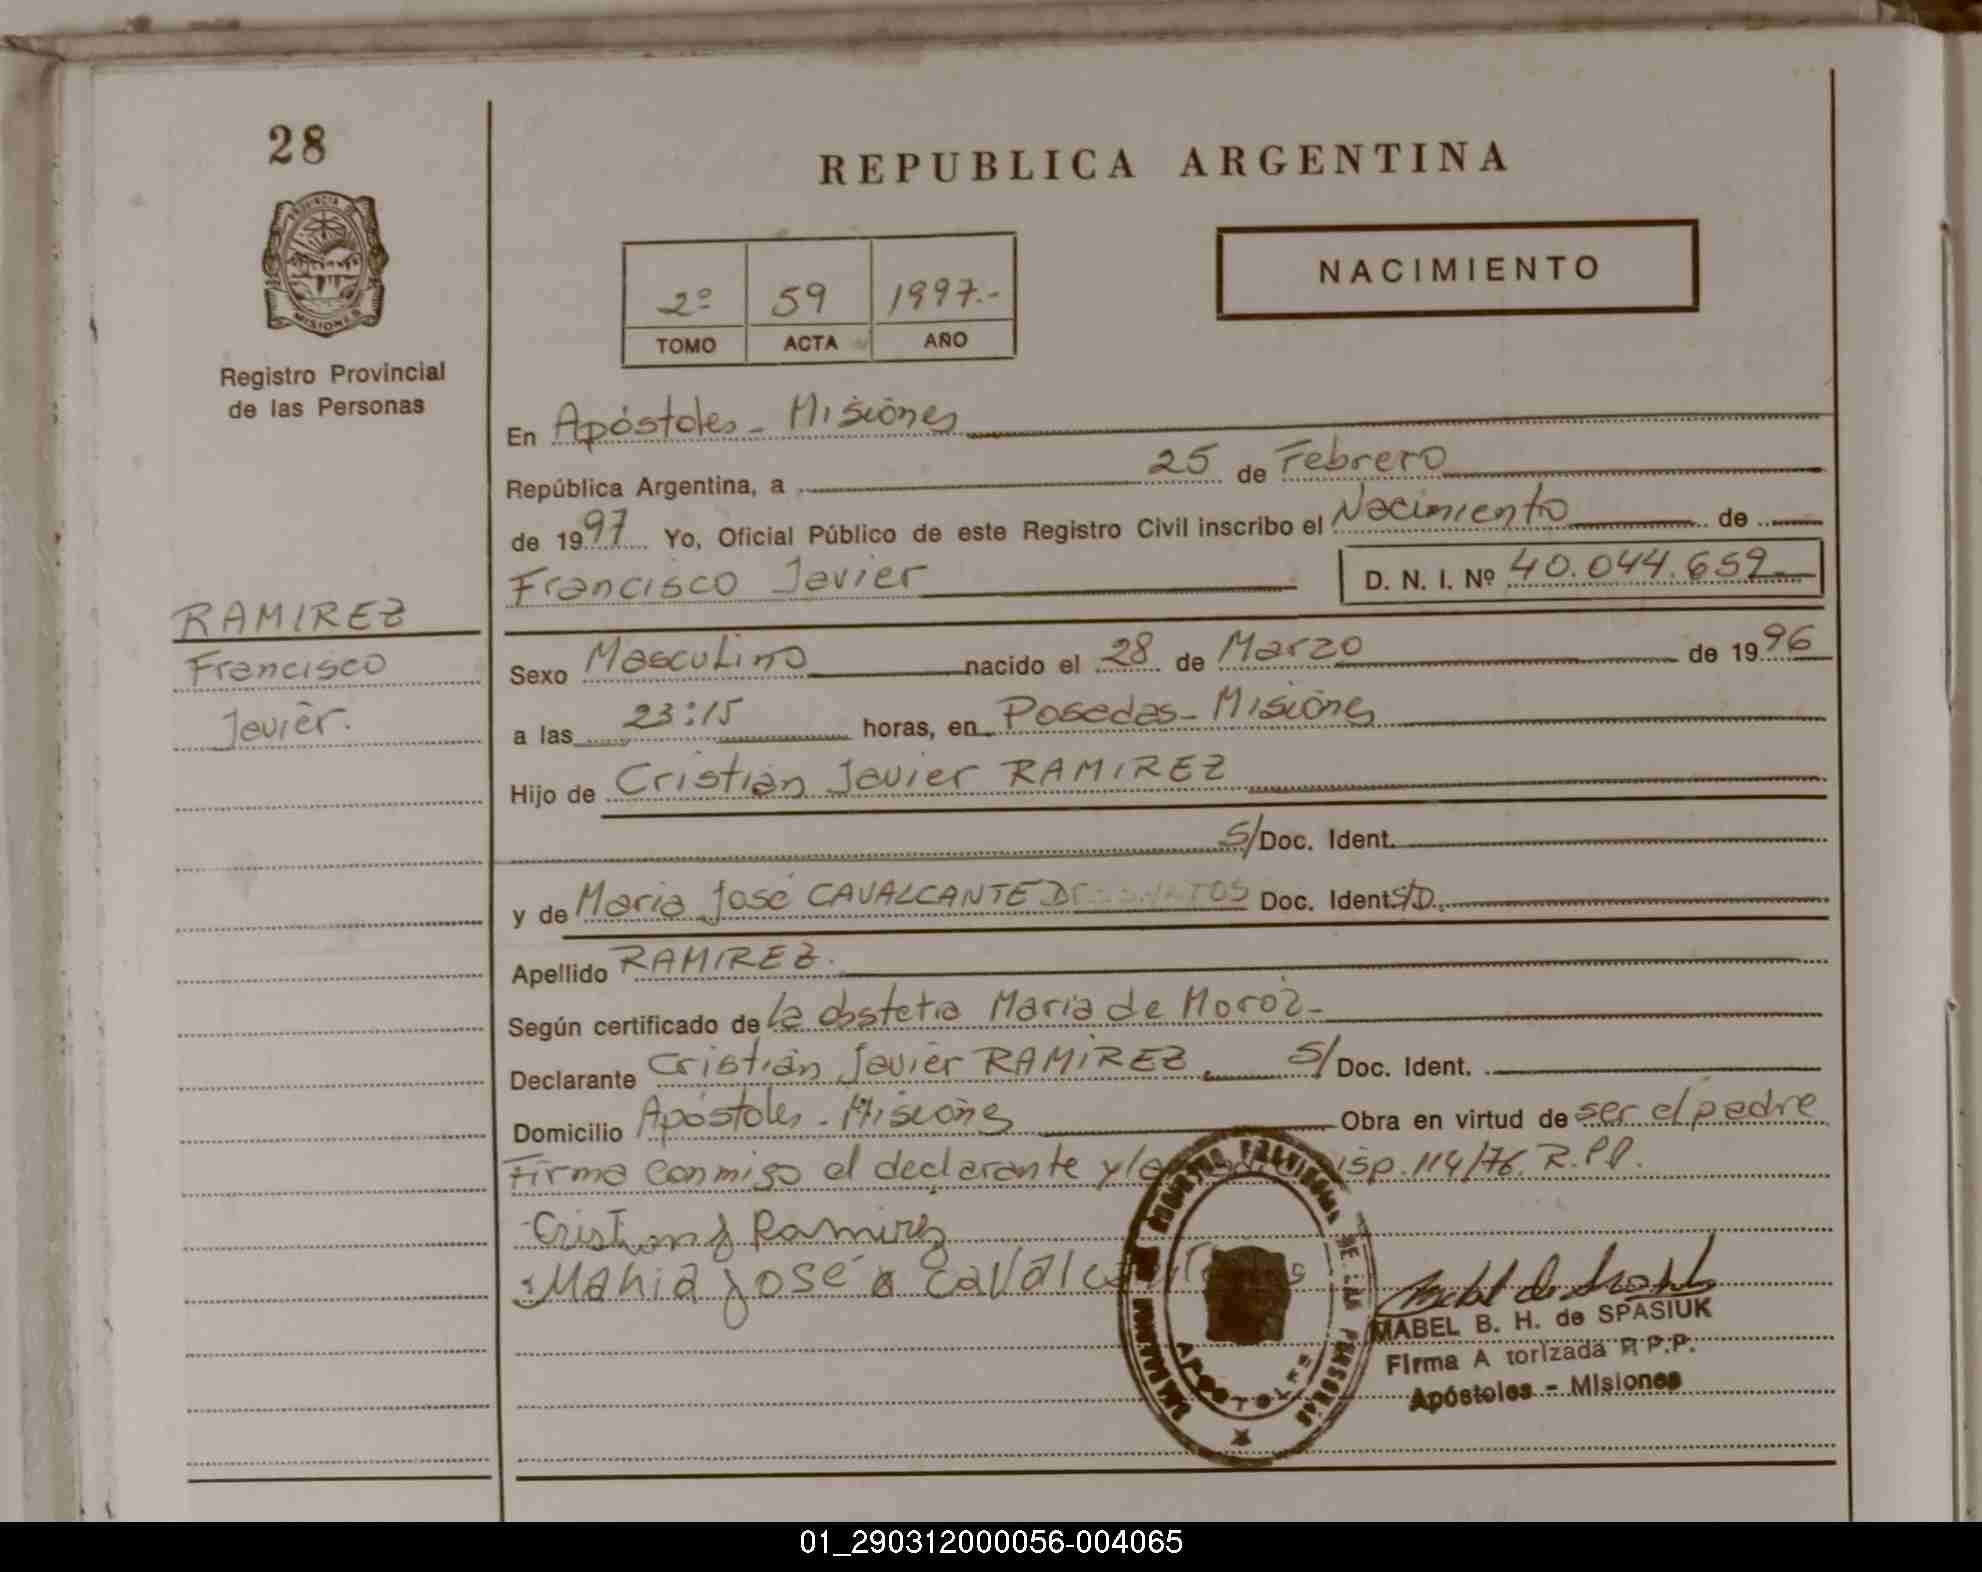 28
REPUBLICA ARGENTINA
PROVINCIA DE
MISIONES
NACIMIENTO
2º 59 1997.-
TOMO ACTA AÑO
Registro Provincial
de las Personas
En Apóstoles - Misiones
República Argentina, a 25 de Febrero
de 1997 Yo, Oficial Público de este Registro Civil inscribo el Nacimiento de
Francisco Javier D. N. I. Nº 40.044.659
RAMIREZ
Francisco
Javier.
Sexo Masculino nacido el 28 de Marzo de 1996
a las 23:15 horas, en Posadas - Misiones
Hijo de Cristián Javier RAMIREZ
S/Doc. Ident.
y de Maria José CAVALCANTE Doc. Ident. S/D.
Apellido RAMIREZ.
Según certificado de la obstetra Maria de Moroz -
Declarante Cristián Javier RAMIREZ. S/Doc. Ident.
Domicilio Apóstoles - Misiones Obra en virtud de ser el padre
Firma conmigo el declarante y la isp. 114/76. R.P.P.
Cristian J Ramirez
Maria José
REGISTRO PROVINCIAL DE LAS PERSONAS
APOSTOLES
MABEL B. H. de SPASIUK
Firma A torizada R P.P.
Apóstoles - Misiones
01_290312000056-004065